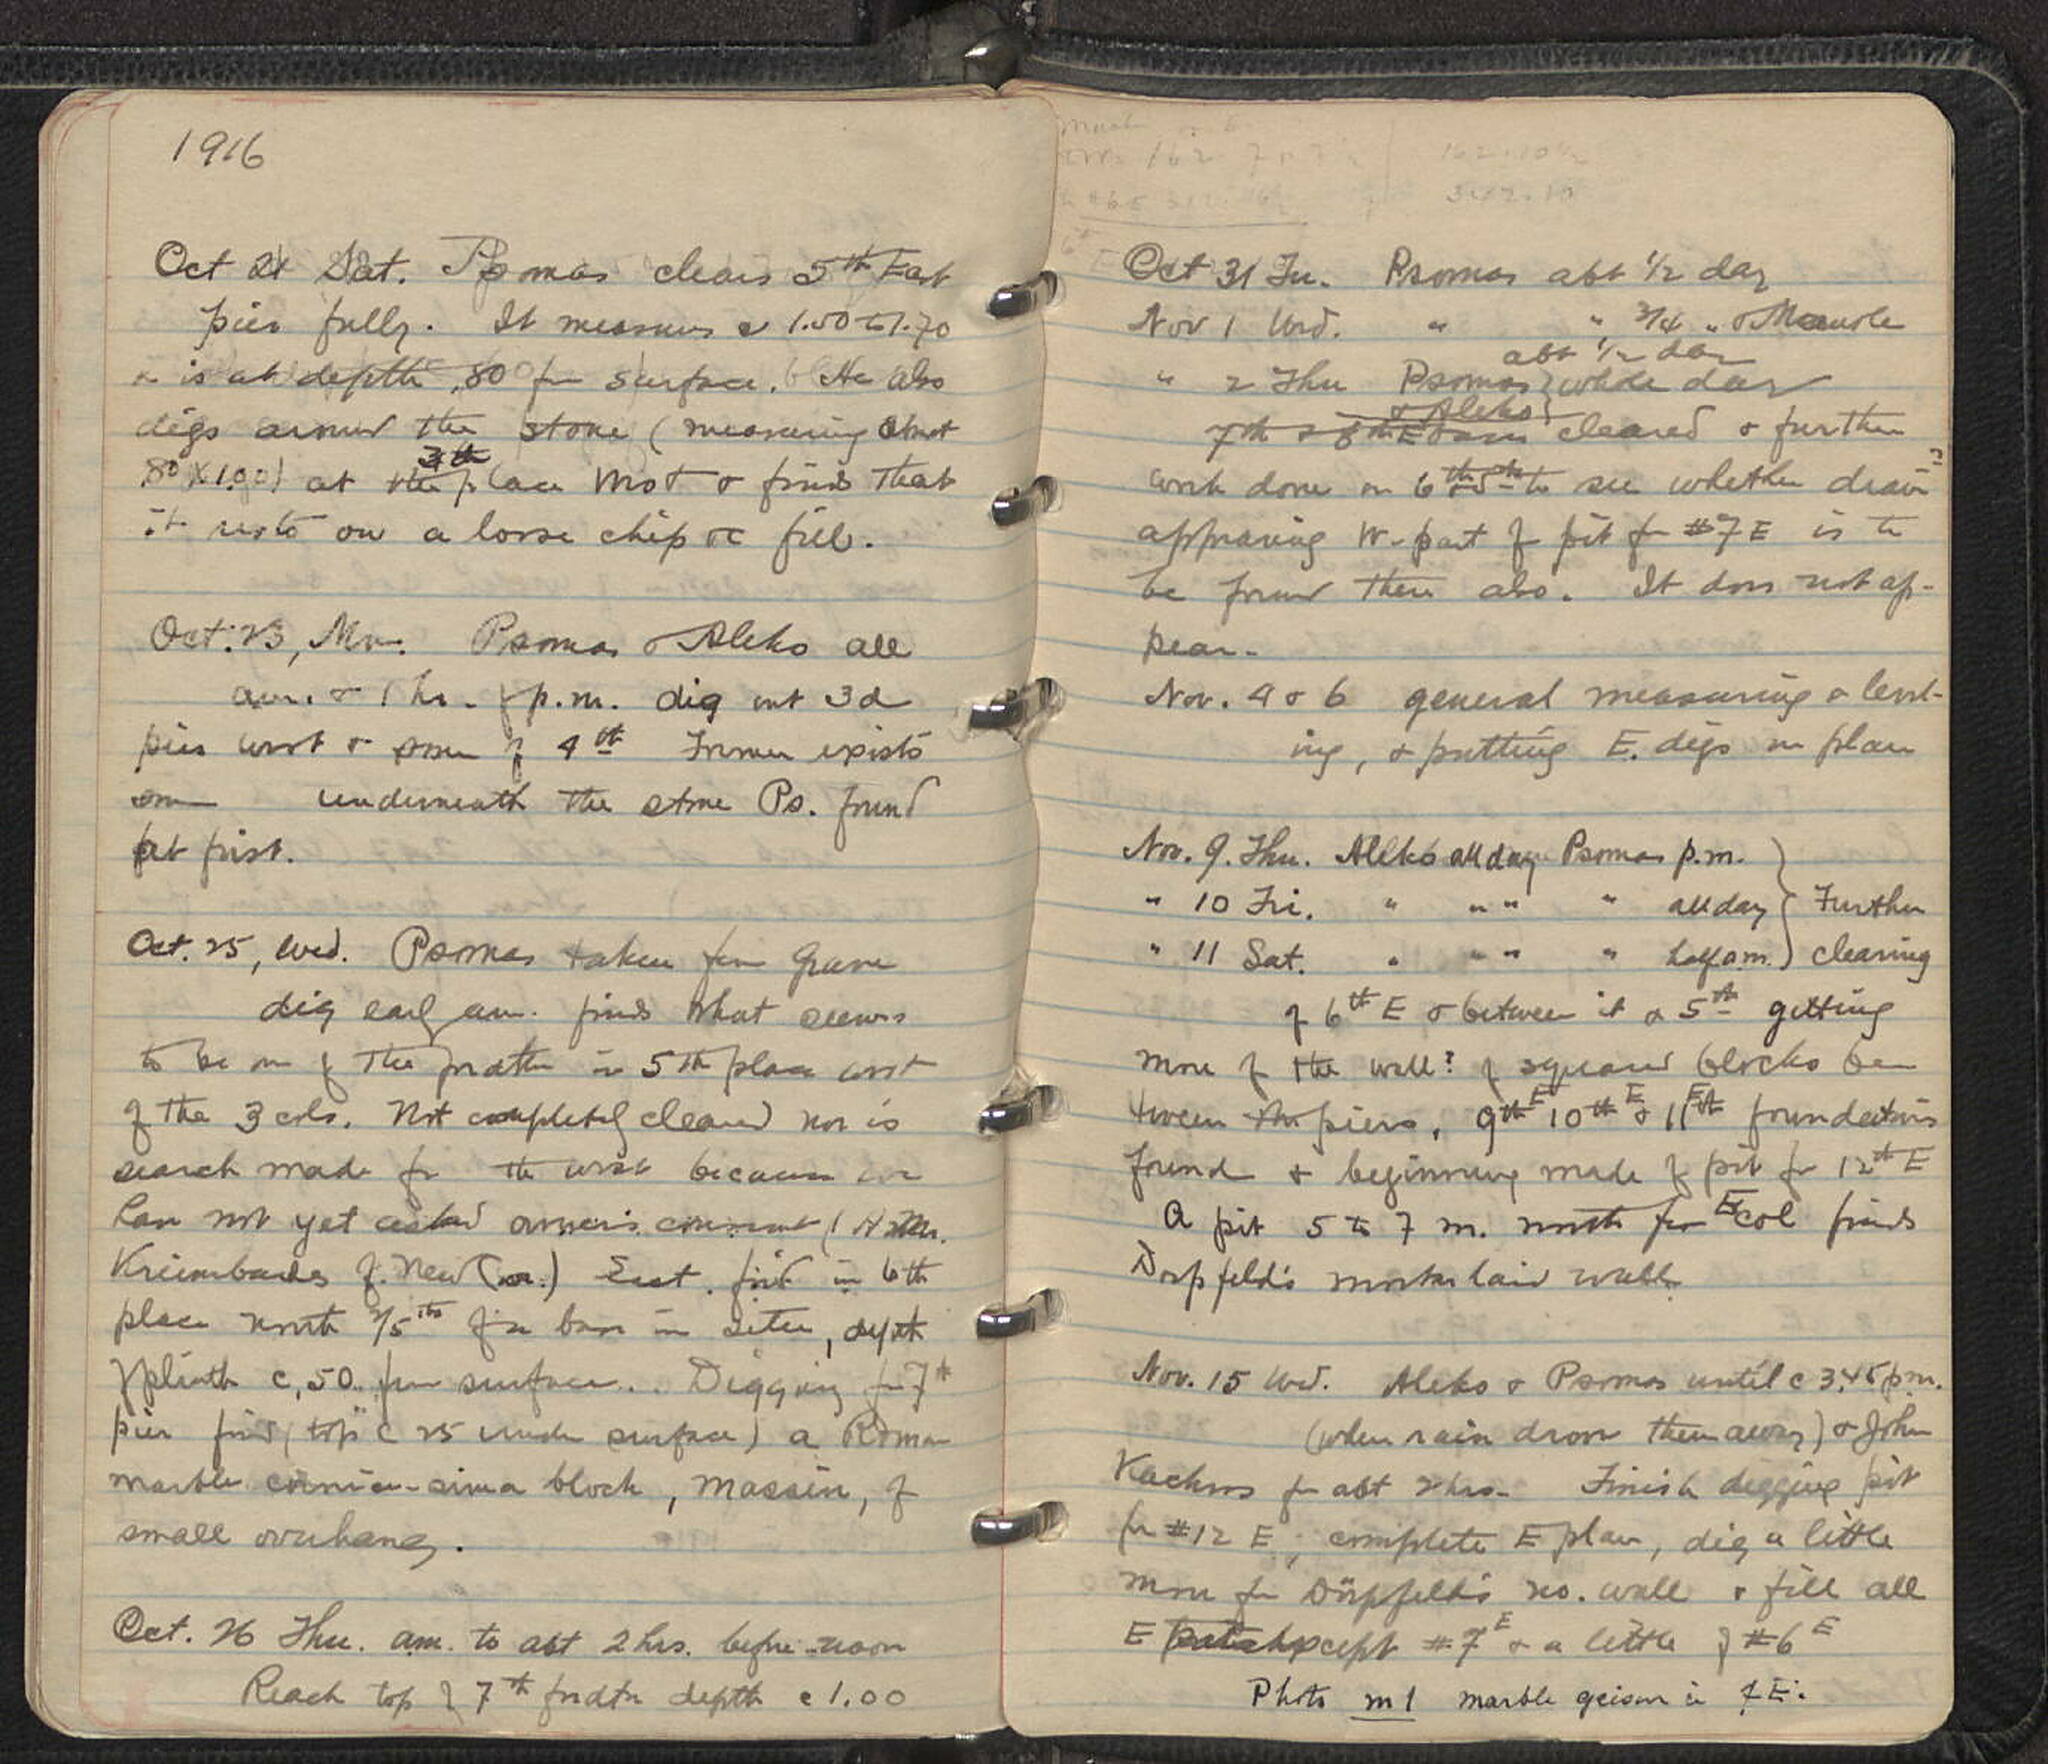 1916
Oct 21 Sat. Psomas clears 5th East
pier fully. It measures c 1.50 to 1.70
& is at depth .80 fm surface. He also
digs around the stone (measuring abt
80 X 1.00) at the 3th place West & finds that
it rests on a loose chip or fill.
Oct. 23, Mon. Psomas & Aleko all
am. & 1 hr. of p.m. dig out 3d
pier west & some of 4th Former exists
underneath the stone Ps. found
at first.
Oct. 25, Wed. Psomas taken fm Grave
dig early am. finds what seems
to be one of the fndtn in 5th place west
of the 3 cols. Not completely cleared nor is
search made for the west because we
have not yet asked owner's consent (
of New) East. find in 6th
place north 2/5ths of a base in situ, depth
of plinth c, 50 fm surface. Digging for 7th
pier find (top c 25 under surface) a Roman
marble cornice-sima block, massive, of
small overhang.
Oct. 26 Thu. am. to abt 2 hrs. before noon
Reach top of 7th fndtn depth c 1.00
Oct 31 Tu. Psomas abt 1/2 day
Nov 1 Wed. " " 3/4 " &
abt 1/2 day
" 2 Thu Psomas & Aleko } whole day
7th & 8th E cleared & further
work done on 6th to see whether drain?
appearing W. part of pit for #7 E is to
be found there also. It does not ap-
pear.
Nov. 4 & 6 general measuring & level-
ing, & putting E. digs on plan
Nov. 9. Thu. Aleko all day Psomas p.m.
" 10 Fri. " " " " all day } Further
" 11 Sat. " " " " half am. ) clearing
of 6th E & between it & 5th getting
more of the wall? of squared blocks be
tween the piers, 9th E 10th E & 11th E foundations
found & beginning made of pit for 12th E
A pit 5 to 7 m. north fm E col finds
Dorpfeld's mortar laid wall.
Nov. 15 Wed. Aleko & Psomas until c 3.45 p.m.
(when rain drove them away) & John
Kachros for abt 2 hrs. Finish digging pit
for #12 E, complete E plan, dig a little
more for Dörpfeld's no. wall & fill all
E except #7 E & a little of #6 E
Photo m 1 marble geison in 7 E.